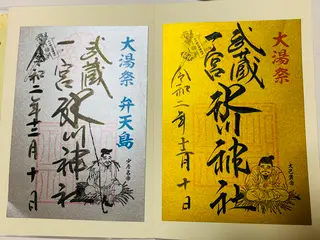 大湯祭
武蔵
一宮氷川神社
令和二年十二月十日
大己貴命
大湯祭 弁天島
武蔵
一宮氷川神社
令和二年十二月十日